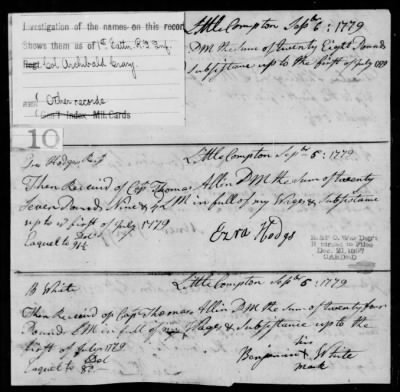 Investigation of the names on this record
Shows them as of 1st Battn R.I. Inf.
Regt Col Archibald Crary.
and Other records
Gen'l Index Mil. Cards
10
Little Compton Sepr 6: 1779
DM the Sum of twenty Eight Pound
Subsistance up to the first of July 1779
Ezra Hodges
Little Compton Sepr 5: 1779
Then Received of Capt Thomas Allin DM the Sum of twenty
Seven Pound Nine & LM in full of my Wages & Subsistance
up to ye first of July 1779
Eaquel to Dol
Ezra Hodgs
Dec. 21, 1897
CARDED
B White
Little Compton Sepr 5: 1779
Then Received of Capt Thomas Allin DM the Sum of twenty four
Pound LM in full of my Wages & Subsistance up to the
first of July 1779
Eaquel to Dol
his
Benjamin X White
mark